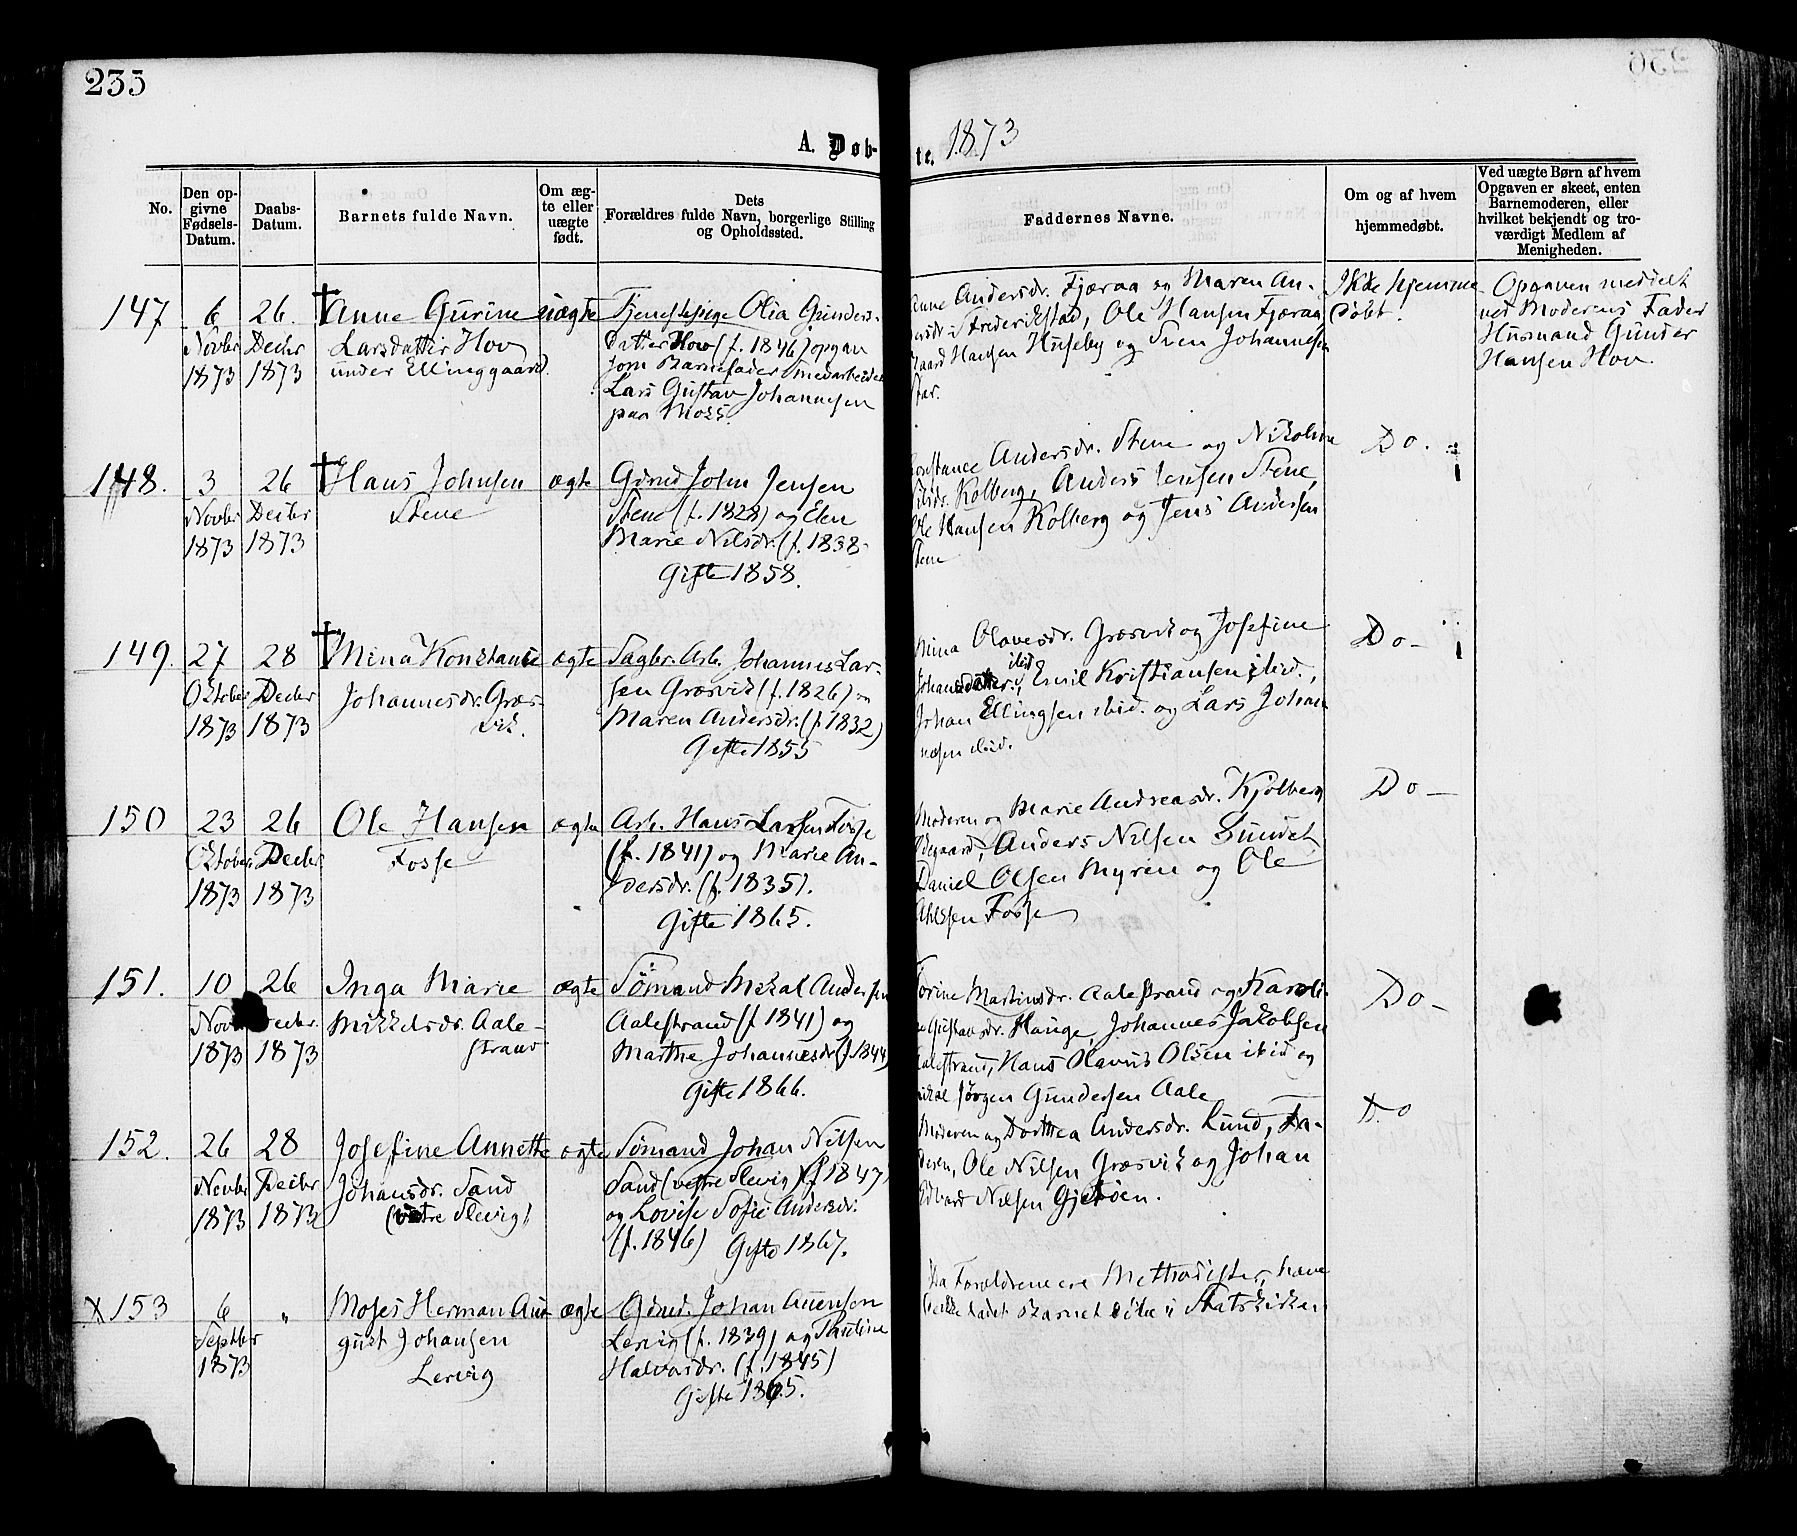 235
A. Døb-
te. 1873
No.
Den op-
givne
Fødsels-
Datum.
Daabs-
Datum.
Barnets fulde Navn.
Om æg-
te eller
uægte
født.
Dets
Forældres fulde Navn, borgerlige Stilling
og Opholdssted.
Faddernes Navne.
Om og af hvem
hjemmedøbt.
Ved uægte Børn af hvem
Opgaven er skeet, enten
Barnemoderen, eller
hvilket bekjendt og tro-
værdigt Medlem af
Menigheden.
147
6
Novbr
1873
26.
Decbr
1873
Anne Gurine
Larsdatter Hov
under Ellinggaard.
uægte
Tjenestepige Olia Gunders-
datter Hov (f. 1846) opgav
som Barnefader medarbeider
Lars Gustav Johannesen
paa Moss.
Anne Andersdr. Fjæraa og Maren An-
dersdr. Frederikstad, Ole Hansen Fjæraa,
Hansen Huseby og Sven Johannesen
Ikke hjemme
døbt.
Opgaven meddelt
ved Moderens Fader
Husmand Gunder
Hansen Hov.
148.
3
Novbr
1873
26
Decbr
1873
Hans Johnsen
Stene
ægte
Gdmd John Jensen
Stene (f. 1828) og Elen
Marie Nilsdr. (f. 1838-
Gifte 1858.
Konstance Andersdr. Stene og Nikoline
Nilsdr. Kolberg, Anders Jensen Stene,
Ole Hansen Kolberg og Jens Andersen
Stene
Do.
149.
27
Oktober
1873
28
Decbr
1873
Mina Konstance
Johannesdr. Græs-
vik.
ægte
Sagbr. Arb. Johannes Lar-
sen Græsvik (f. 1826) og
Maren Andersdr. (f. 1832)
Gifte 1855
Mina Olavesdr. Græsvik og Josefine
Johansdatter ibid., Emil Kristiansen ibid.,
Johan Ellingsen ibid. og Lars Johan-
nesen ibid.
Do -
150
23
Oktober
1873
26
Decbr
1873
Ole Hansen
Fosse
ægte
Arb. Hans Larsen Fosse
(f. 1841) og Marie An-
dersdr. (f. 1835).
Gifte 1865.
Moderen og Marie Andreasdr. Kjølberg
Ødegaard, Anders Nilsen Sundet
Daniel Olsen Myren og Ole
Fosse
Do -
151.
10
Novbr
1873
26
Decbr.
1873
Inga Marie
Mikkelsdr. Aale-
strand
ægte
Sømand Mikal Andersen
Aalestrand (f 1841) og
Marthe Johannesdr (f 1844)
Gifte 1866.
Torine Martinsdr. Aalestrand og Karoli-
ne Gustavsdr. Hauge, Johannes Jakobsen
Aalestrand, Hans Olavus Olsen ibid og
Mikal Jørgen Gundersen Aale
Do -
152.
26
Novbr
1873
28
Decbr
1873
Josefine Annette
Johansdr. Sand
(vestre Slevig)
ægte
Sømand Johan Nilsen
Sand (vestre Slevig) (f 1847)
og Lovise Sofie Andersdr.
(f. 1846) Gifte 1867.
Moderen og Dorthea Andersdr. Lund, Fa-
deren, Ole Nilsen Græsvik og Johan
Edvard Nilsen Gjetøen.
Do
X 153
6
Septbr
1873
"
Moses Herman Au-
gust Johansen
Lervig
ægte
Gdmd. Johan Auensen
Lervig (f. 1839) og Pauline
Halvorsdr. (f. 1845)
Gifte 1865.
Da Forældrene ere Methodister, have
de ikke ladet Barnet døbe i Statskirken